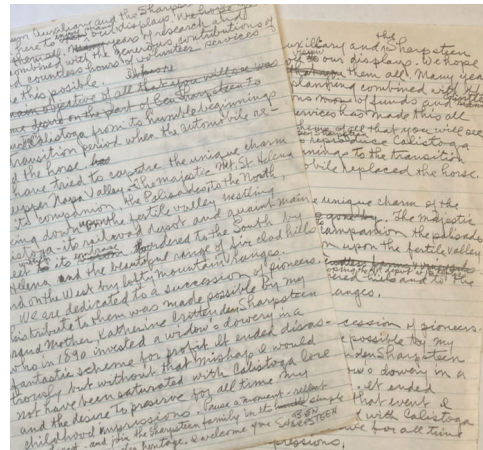 Auxiliary and the Sharpsteen
here to our displays. We hope
themself. years of research and
combined with the generous contributions of
countless hours of volunteer services
this possible.
objective of all that you will see was
desire on the part of Ben Sharpsteen to
Calistoga from its humble beginnings
transition period when the automobile re-
the horse.
have tried to capture the unique charm
upper Napa Valley - the majestic Mt. St. Helena
its companion, the Palisades to the North,
ing down upon the fertile valley nestling
its railroad depot and quaint main
to its bordered to the South by
Helena and the beautiful range of fire clad hills
and on the West by lofty mountain ranges.
We are dedicated to a succession of pioneers.
This tribute to them was made possible by my
grand Mother, Katherine Crittenden Sharpsteen
who in 1890 invested a widow's dowery in a
fantastic scheme for profit. It ended disas-
trously but without that mishap I would
not have been saturated with Calistoga lore
and the desire to preserve for all time my
childhood impressions. Pause a moment - reflect
and join the Sharpsteen family in its
heritage. I welcome you BEN
SHARPSTEEN
the
auxiliary and Sharpsteen
our displays. We hope
them all. Many yea
planning combined with
of funds and
services has made this all
of all that you will see
reproduce Calistoga
nings to the transition
obile replaced the horse.
unique charm of the
The majestic
companion the palisades
upon the fertile valley
hills and to the
anges.
cession of pioneers.
possible by my
nden Sharpsteen
w's dowery in a
It ended
that event I
with Calistoga
ve for all time
pressions.